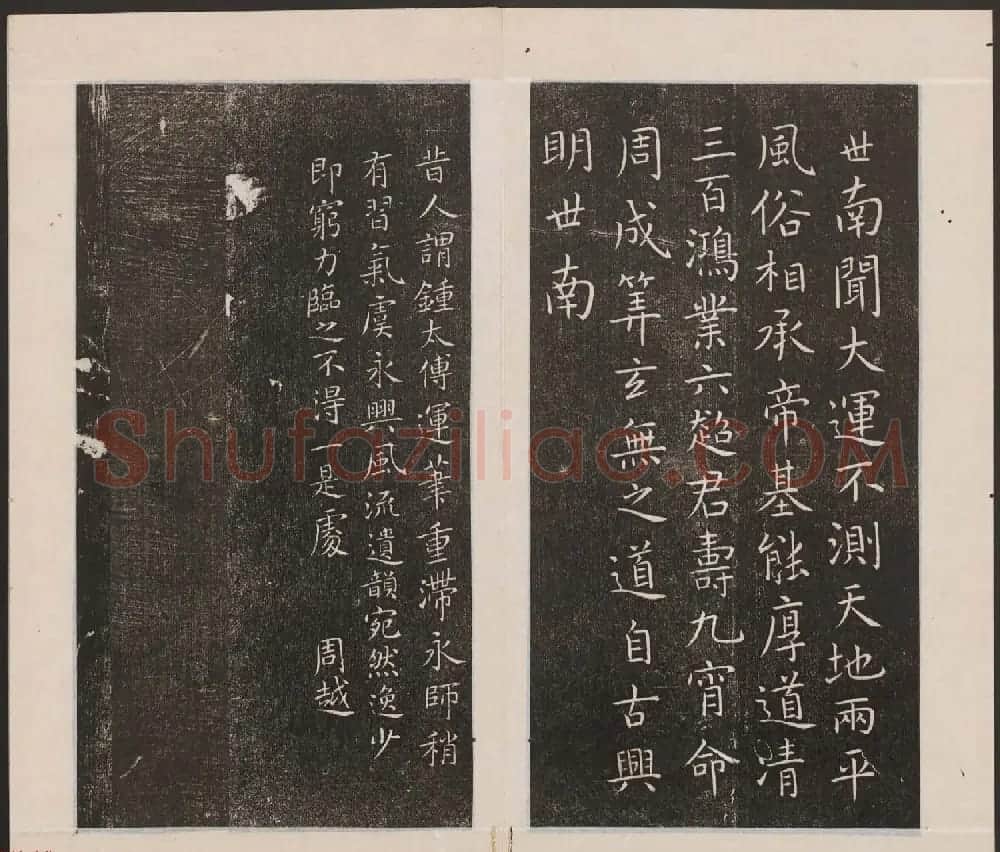 世南聞大運不測天地兩平
風俗相承帝基能厚道清
三百鴻業六超君壽九霄命
周成筭玄無之道自古興
明世南
昔人謂鍾太傅運筆重滯永師稍
有習氣虞永興風流遺韻宛然逸少
即窮力臨之不得一是處
周越
Shufaziliao.COM